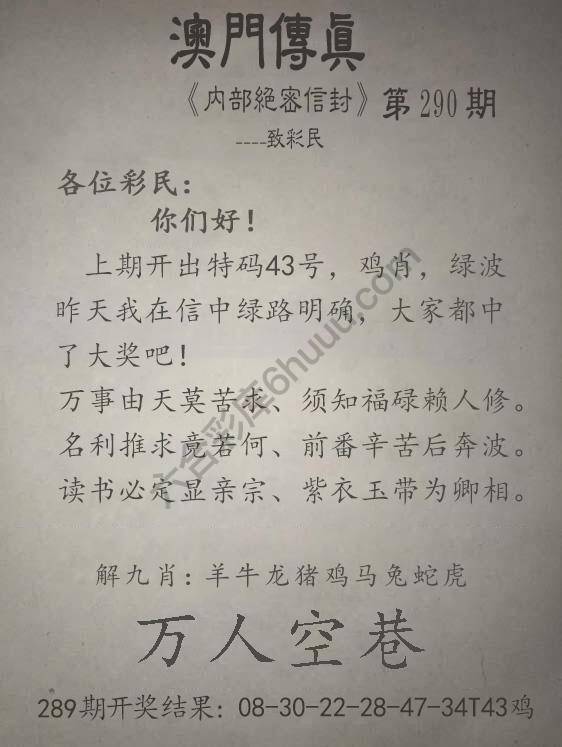 澳門傳眞
《内部絕密信封》第290期
----致彩民
各位彩民：
你们好！
上期开出特码43号，鸡肖，绿波
昨天我在信中绿路明确，大家都中
了大奖吧！
万事由天莫苦求、须知福碌赖人修。
名利推求竟若何、前番辛苦后奔波。
读书必定显亲宗、紫衣玉带为卿相。
六合彩库6huuu.com
解九肖：羊牛龙猪鸡马兔蛇虎
万人空巷
289期开奖结果：08-30-22-28-47-34T43鸡